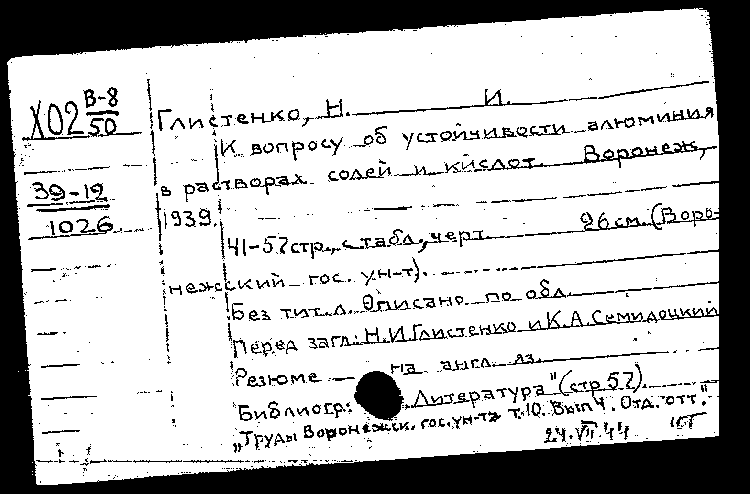 Х02 В-8
50
Глистенко, Н. И.
К вопросу об устойчивости алюминия
39-19
в растворах солей и кислот. Воронеж,
1026
1939.
41-57стр., с табл., черт. 26см. (Воро-
нежский гос. ун-т).
Без тит. л. Описано по обл.
Перед загл: Н.И.Глистенко и К.А.Семидоцкий
Резюме — на англ. яз.
Библиогр: Литература" (стр 57).
„Труды Воронежск. гос. ун-та т.10. Вып 4. Отд. отт."
24.VII.44